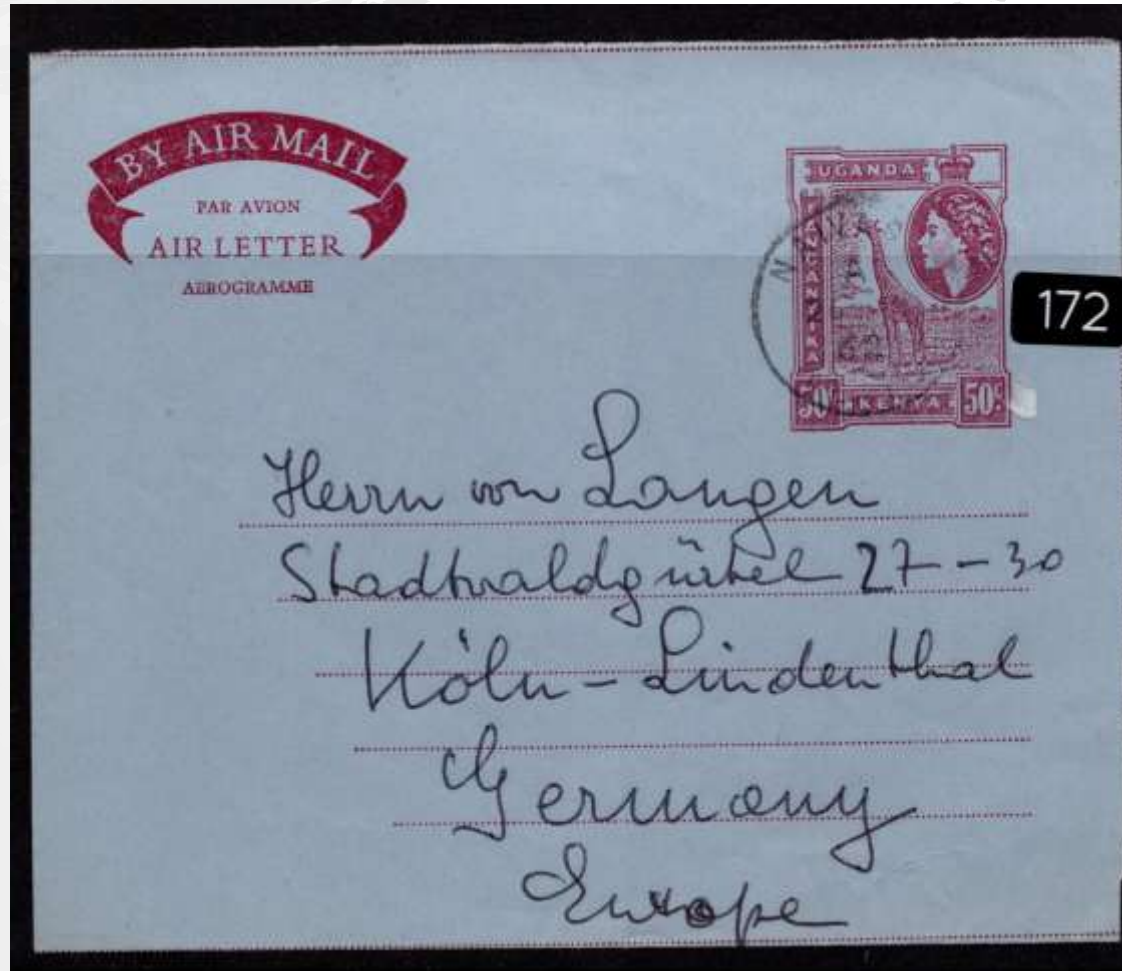 BY AIR MAIL
PAR AVION
AIR LETTER
AEROGRAMME
UGANDA
TANGANYIKA
50c KENYA 50c
172
Herrn von Langen
Stadtwaldgürtel 27-30
Köln-Lindenthal
Germany
Europe